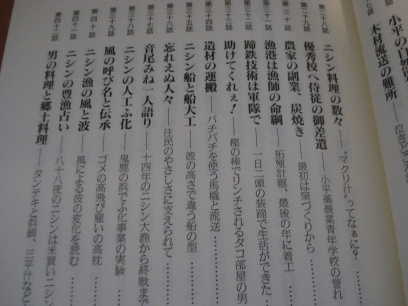 小平の
木材流送の難所
第二十八話 ニシン料理の数々――“マクリ汁”ってなぁに?
第二十九話 優秀校へ侍従の御差遣――小平薬農業青年学校の誉れ
第三十話 農家の副業、炭焼き――最初は窯づくりから
漁港は漁師の命綱――拓殖計画、最後の年に着工
蹄鉄技術は軍隊で――一日二頭の装蹄で生活ができた
助けてくれぇ!――樫の棒でリンチされるタコ部屋の男
第三十四話 造材の運搬――バチバチを使う馬橇と流送
第三十五話 ニシン船と船大工――波の高さで違う船の型
忘れえぬ人々――住民のやさしさに支えられて
音尾みね一人語り――十四年のニシン大漁から終戦まで
ニシンの人工ふ化――鬼鹿の浜でふ化事業の実験
第三十九話 風の呼び名と伝承――ゴメの高飛び雇いの高枕
第四十話 ニシン漁の風と波――風による波の変化を読む
ニシンの豊漁占い――八十八夜のニシンは米買いニシン
男の料理と郷土料理――タンテキと浜鍋、三平汁など